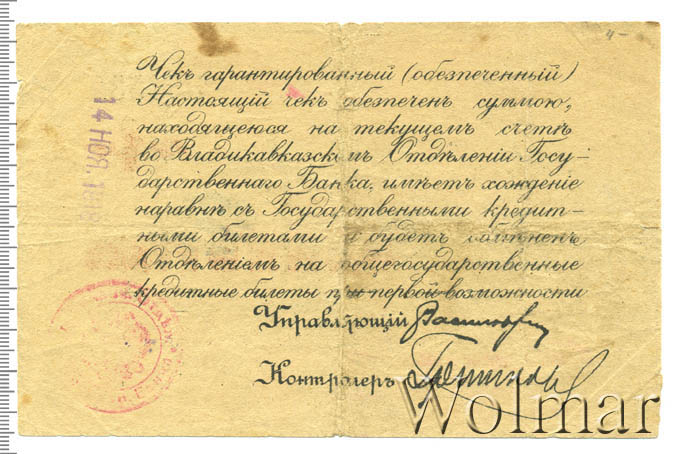 Чекъ гарантированный (обезпеченный)
Настоящій чекъ обезпеченъ суммою,
находящеюся на текущемъ счетѣ
во Владикавказскомъ Отдѣленіи Госу-
дарственнаго Банка, имѣетъ хожденіе
наравнѣ съ Государственными кредит-
ными билетами и будетъ обмѣненъ
Отдѣленіемъ на общегосударственные
кредитные билеты при первой возможности
Управляющій
Контролеръ
14 НОЯ. 191
Wolmar